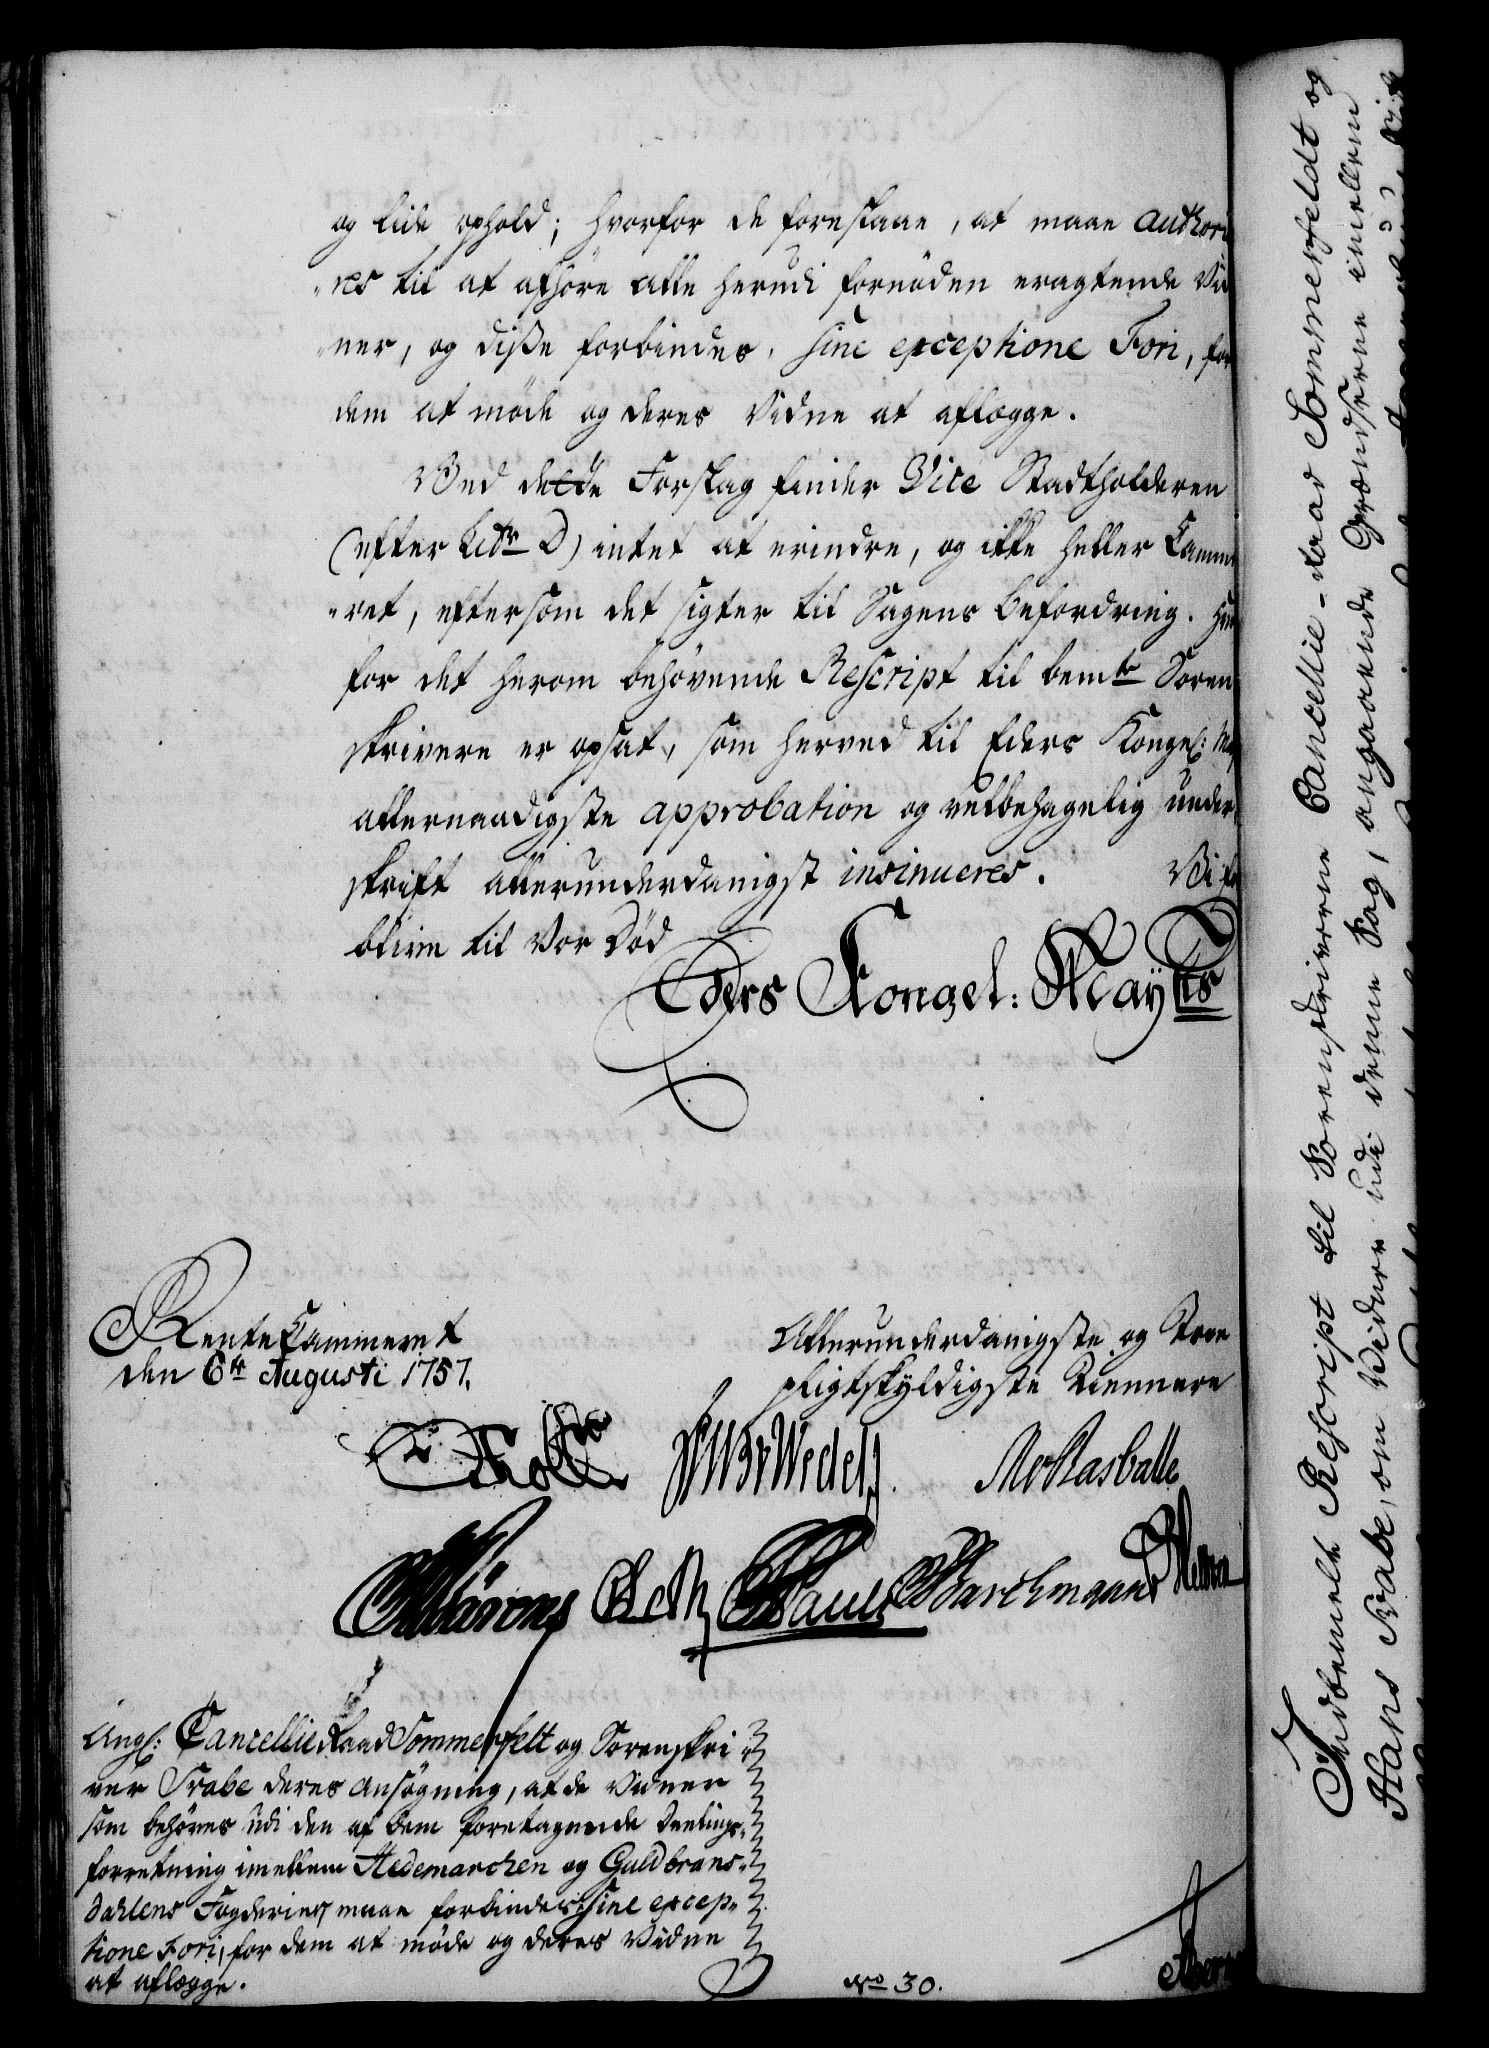 og lide ophold; hvorfor de foreslaae, at maae authori
"res til at afhöre alle herudi fornöden eragtende Vid
"ner, og disse forbindes, sine exceptione Fori, for
dem at möde og deres Vidne at aflægge.
Ved dette Forslag finder Vice Stadtholderen
(efter Litr D) intet at erindre, og ikke heller Camme
"ret, eftersom det sigter til Sagens befordring. Hvor
for det herom behövende Rescript til bemte Soren
skrivere er opsat, som herved til Eders Kongel: May
allernaadigste approbation og velbehagelig under
skrift allerunderdanigst insinueres. Vi for
blive til vor Död
Eders Kongel: Mayts
RenteCammeret
den 6te Augusti 1757.
Allerunderdanigste og Troe
pligtskyldigste Tiennere
Holst
Wedel
Rasballe
Pauli Barchmann
Ang: CancellieRaad Sommerfelt og Sorenskri
ver Frabe deres ansögning, at de Vidner
som behöves udi den af dem foretagende Deelings-
forretning imellem Hedemarchen og Guldbrans-
dahlens Fogderier, maae forbindes, sine excep-
tione Fori, for dem at möde og deres Vidne
at aflægge.
No 30.
Indbemelte Rescript til Sorenskriverne Cancellie-Raad Sommerfeldt og
Hans Frabe, om Vidner udi denne Sag, angaaende Grændserne imellem